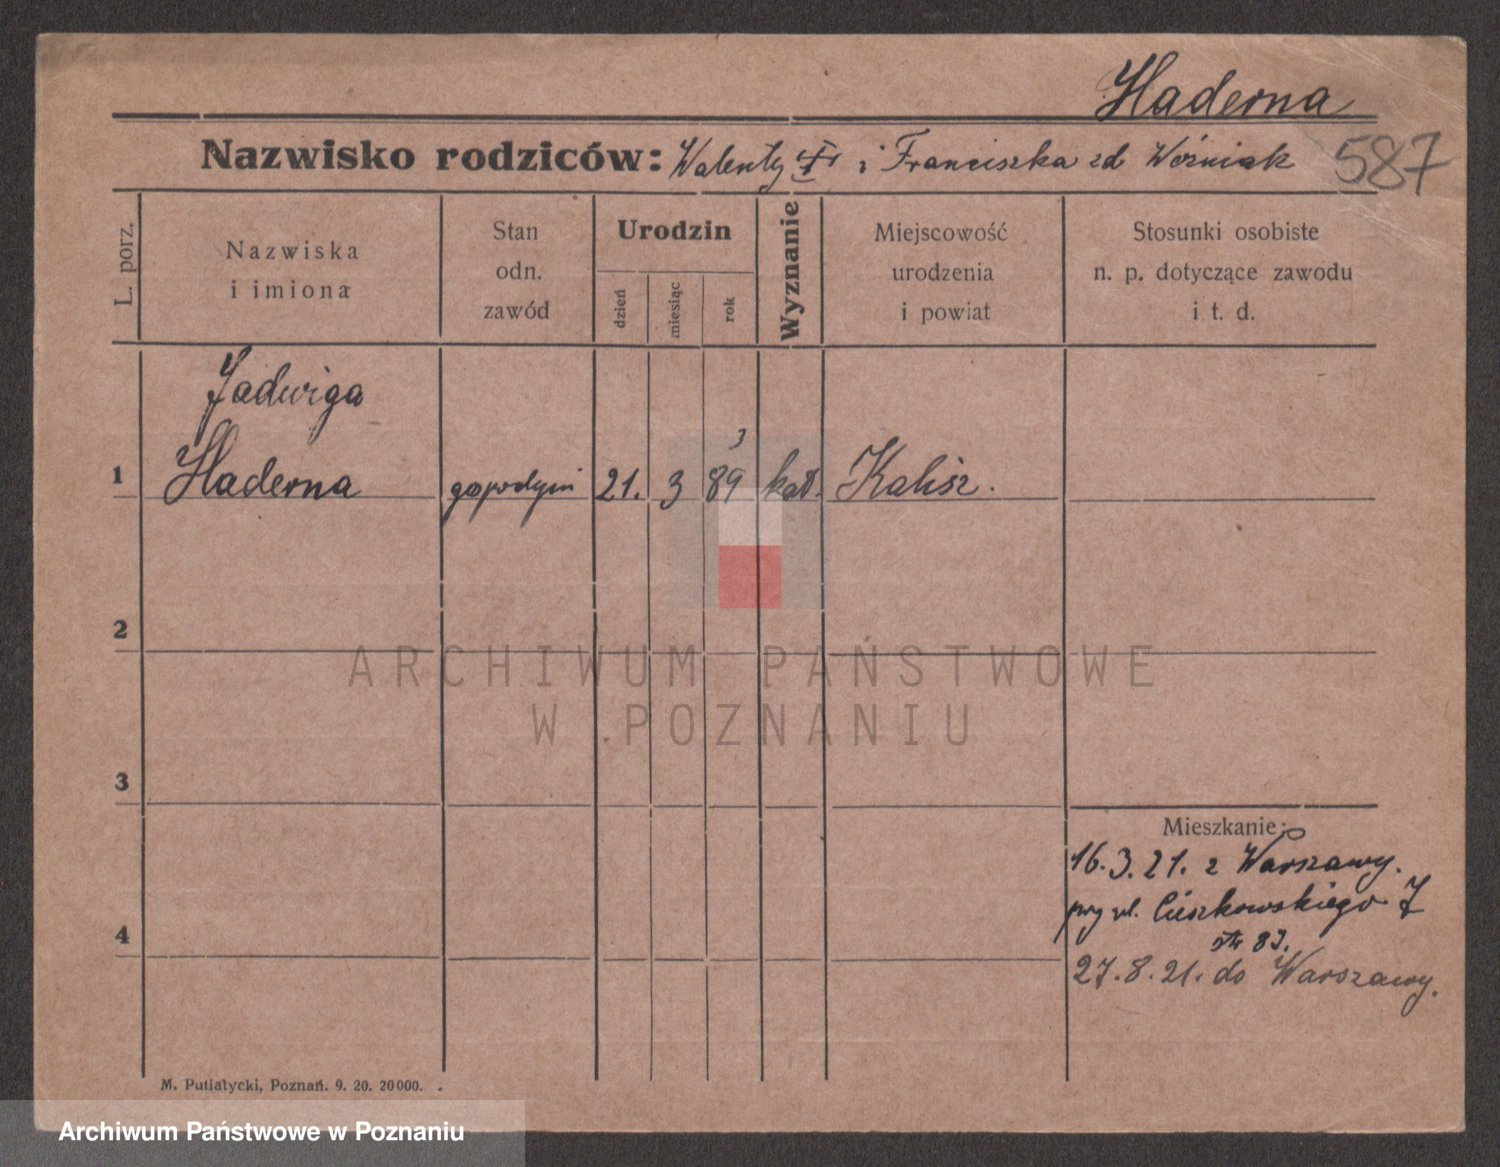 Haderna
Nazwisko rodziców: Walenty i Franciszka zd Woźniak 587
L. porz.
Nazwiska
i imiona
Stan
odn.
zawód
Urodzin
dzień
miesiąc
rok
Wyznanie
Miejscowość
urodzenia
i powiat
Stosunki osobiste
n. p. dotyczące zawodu
i t. d.
Jadwiga
3
1 Haderna 21. 3 89 kat. Kalisz.
2
ARCHIWUM PAŃSTWOWE
W POZNANIU
3
Mieszkanie:
16.3.21. z Warszawy.
przy ul. Cieszkowskiego 7
4
27.8.21. do Warszawy.
M. Putiatycki, Poznań. 9. 20. 20000.
Archiwum Państwowe w Poznaniu